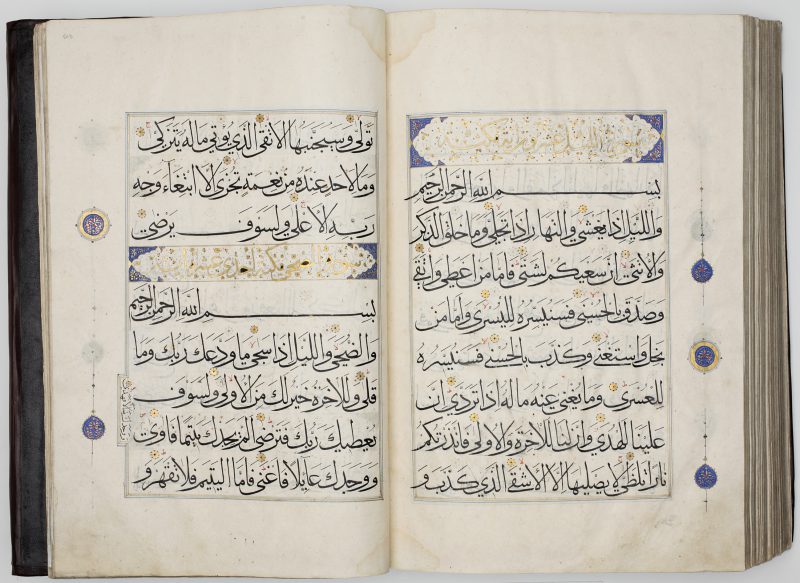 سورة الليل عشرون اية مكية
بسم الله الرحمن الرحيم
والليل اذا يغشى والنهار اذا تجلى وما خلق الذكر
والانثى ان سعيكم لشتى فاما من اعطى واتقى
وصدق بالحسنى فسنيسره لليسرى واما من
بخل واستغنى وكذب بالحسنى فسنيسره
للعسرى وما يغنى عنه ماله اذا تردى ان
علينا للهدى وان لنا للاخرة والاولى فانذرتكم
نارا تلظى لا يصليها الا الاشقى الذى كذب و
تولى وسيجنبها الاتقى الذى يؤتى ماله يتزكى
وما لاحد عنده من نعمة تجزى الا ابتغاء وجه
ربه الاعلى ولسوف يرضى
سورة الضحى مكية
بسم الله الرحمن الرحيم
والضحى والليل اذا سجى ما ودعك ربك وما
قلى وللاخرة خير لك من الاولى ولسوف
يعطيك ربك فترضى الم يجدك يتيما فاوى
ووجدك عايلا فاغنى فاما اليتيم فلا تقهر و